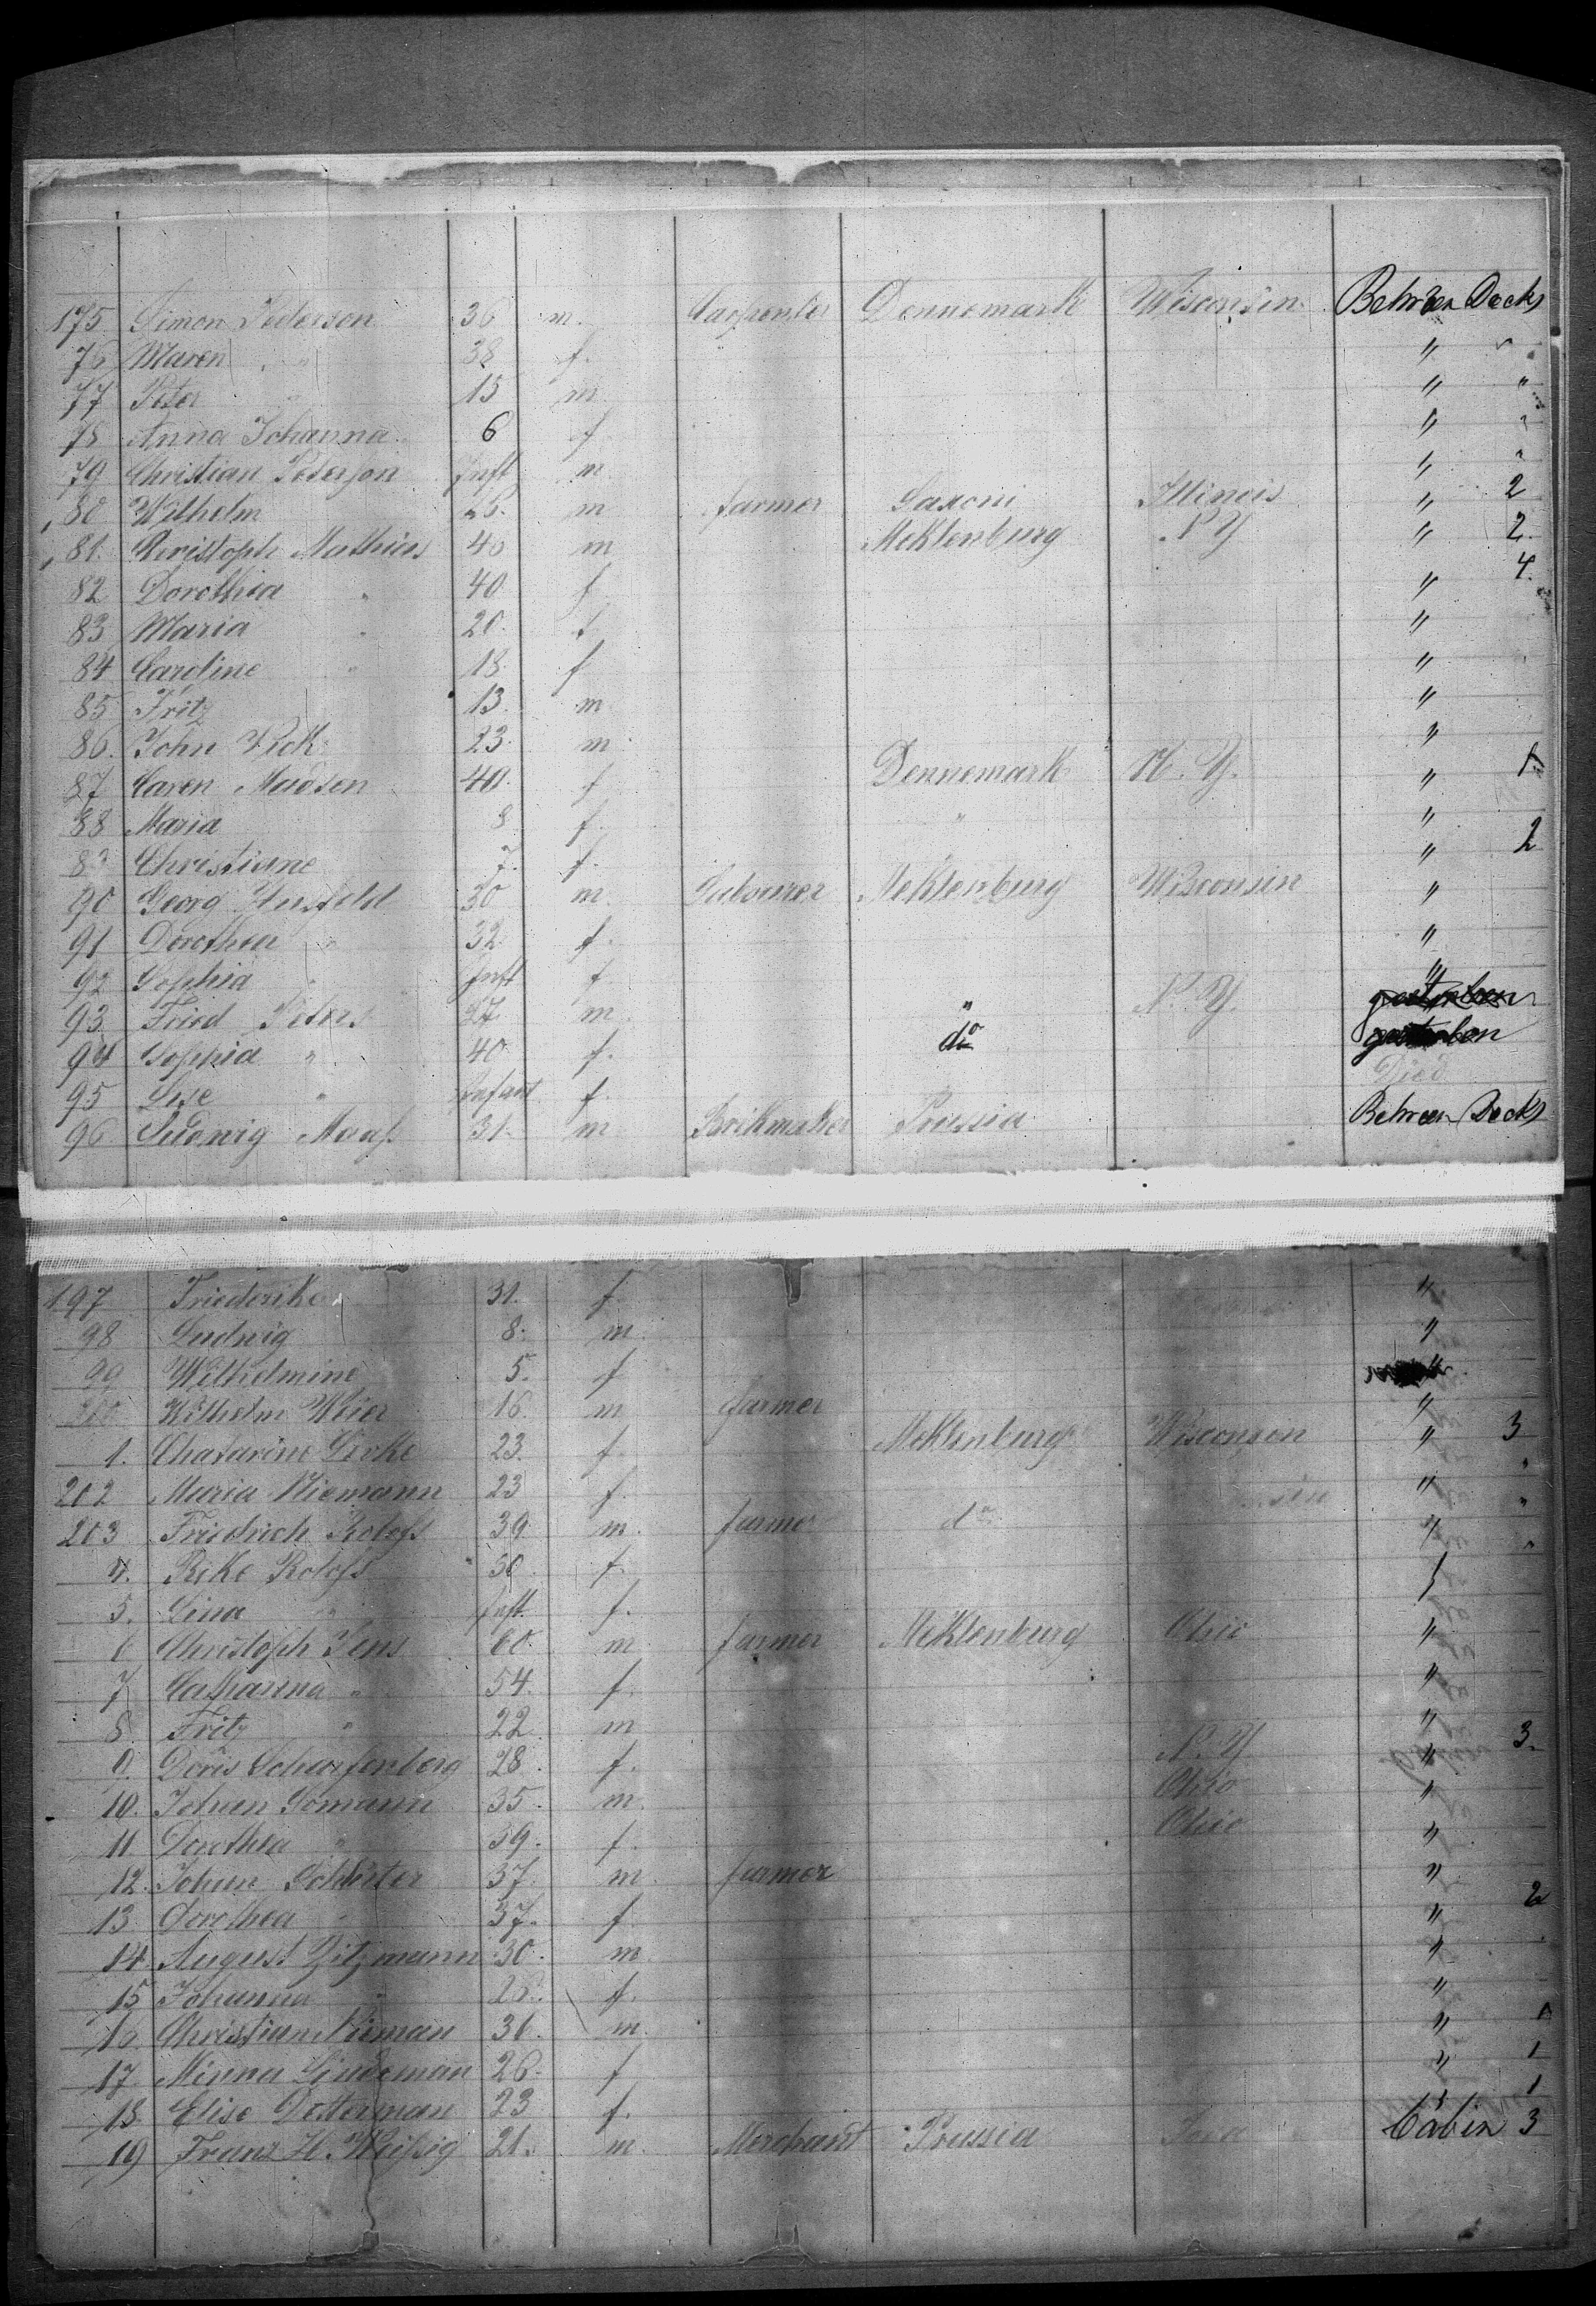 175 Simon Pederson 36 m. Carpenter Dennemark Wisconsin Between Decks
76 Maren " 38 f. " "
77 Peter " 15 m " "
78 Anna Johanna 6 f " "
79 Christian Peterson Inft m " "
80 Wilhelm 26. m farmer Saxoni Illinois " 2
81. Christoph Mathies 40 m Meklenburg N Y " 2.
82 Dorothea " 40 f " 4.
83 Maria " 20. f "
84 Caroline " 18. f "
85 Fritz 13. m "
86. John Pick 23. m "
87 Caren Madsen 40. f Dennemark N. Y. " 1
88 Maria 8 f. " "
89 Christiane 7. f. " 2
90 Georg 30 m. Meklenburg Wisconsin "
91 Dorothea " 32 f. "
92 Sophia " Inft f "
93 Fried Peters 27 m. " N. Y. gestorben
94 Sophia " 40. f. do gestorben
95 Lise " Infant f. Died
96 Ludwig Maaß 31. m Brikmaker Prussia Between Decks
197 Friederike 31. f "
98 Ludwig 8. m. "
99 Wilhelmine 5. f "
200 Wilhelm Meier 16. m farmer "
1. Chatarine 23. f. Meklenburg Wisconsin " 3
202 Maria Niemann 23 f. " "
203 Friedrich Roloff 39. m. farmer do " "
4. Reke Roloff 30 f. "
5. Lina " Inft. f.
6 Christoph Jens 60. m. farmer Meklenburg Ohio "
7 Catharina " 54. f. "
8. Fritz " 22. m "
9. Doris Scharfenberg 28. f. N. Y " 3.
10. Johan 35. m. Ohio "
11 Dorothea " 39. f. Ohio "
12. Johan Schlüter 37. m. farmer "
13 Dorothea " 37. f. " 2
14 August Zitzmann 30. m "
15 Johanna " 26. f. "
16. Christian Nieman 31. m. " 1
17 Minna Lindeman 26. f " 1
18. Elise Detterman 23 f. " 1
19 Franz H. Weißig 21. m. Merchant Prussia Cabin 3